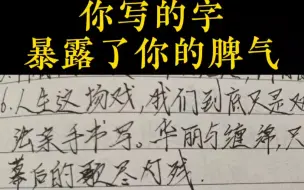 你写的字
暴露了你的脾气
6.人生这场戏,我们到底又是
法亲手书写。华丽与缠绵,只
幕后的歌尽灯残.